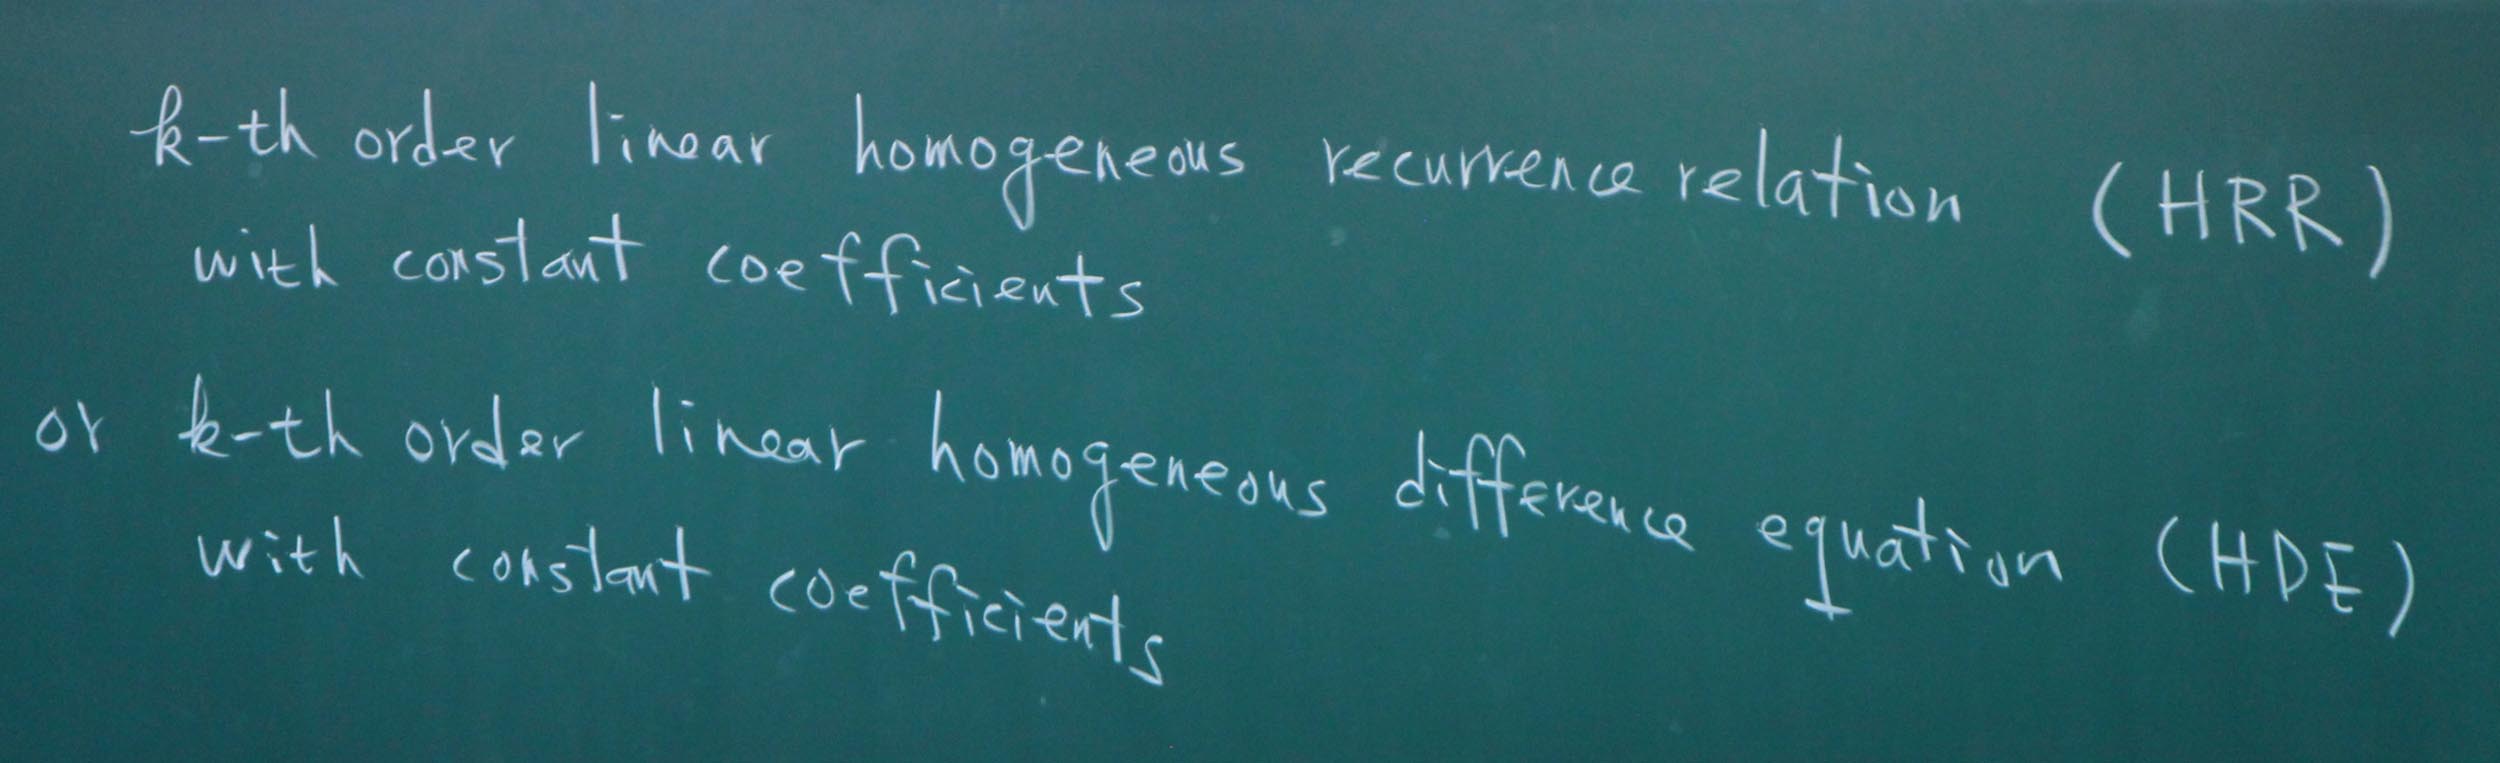 k-th order linear homogeneous recurrence relation (HRR)
with constant coefficients
or k-th order linear homogeneous difference equation (HDE)
with constant coefficients